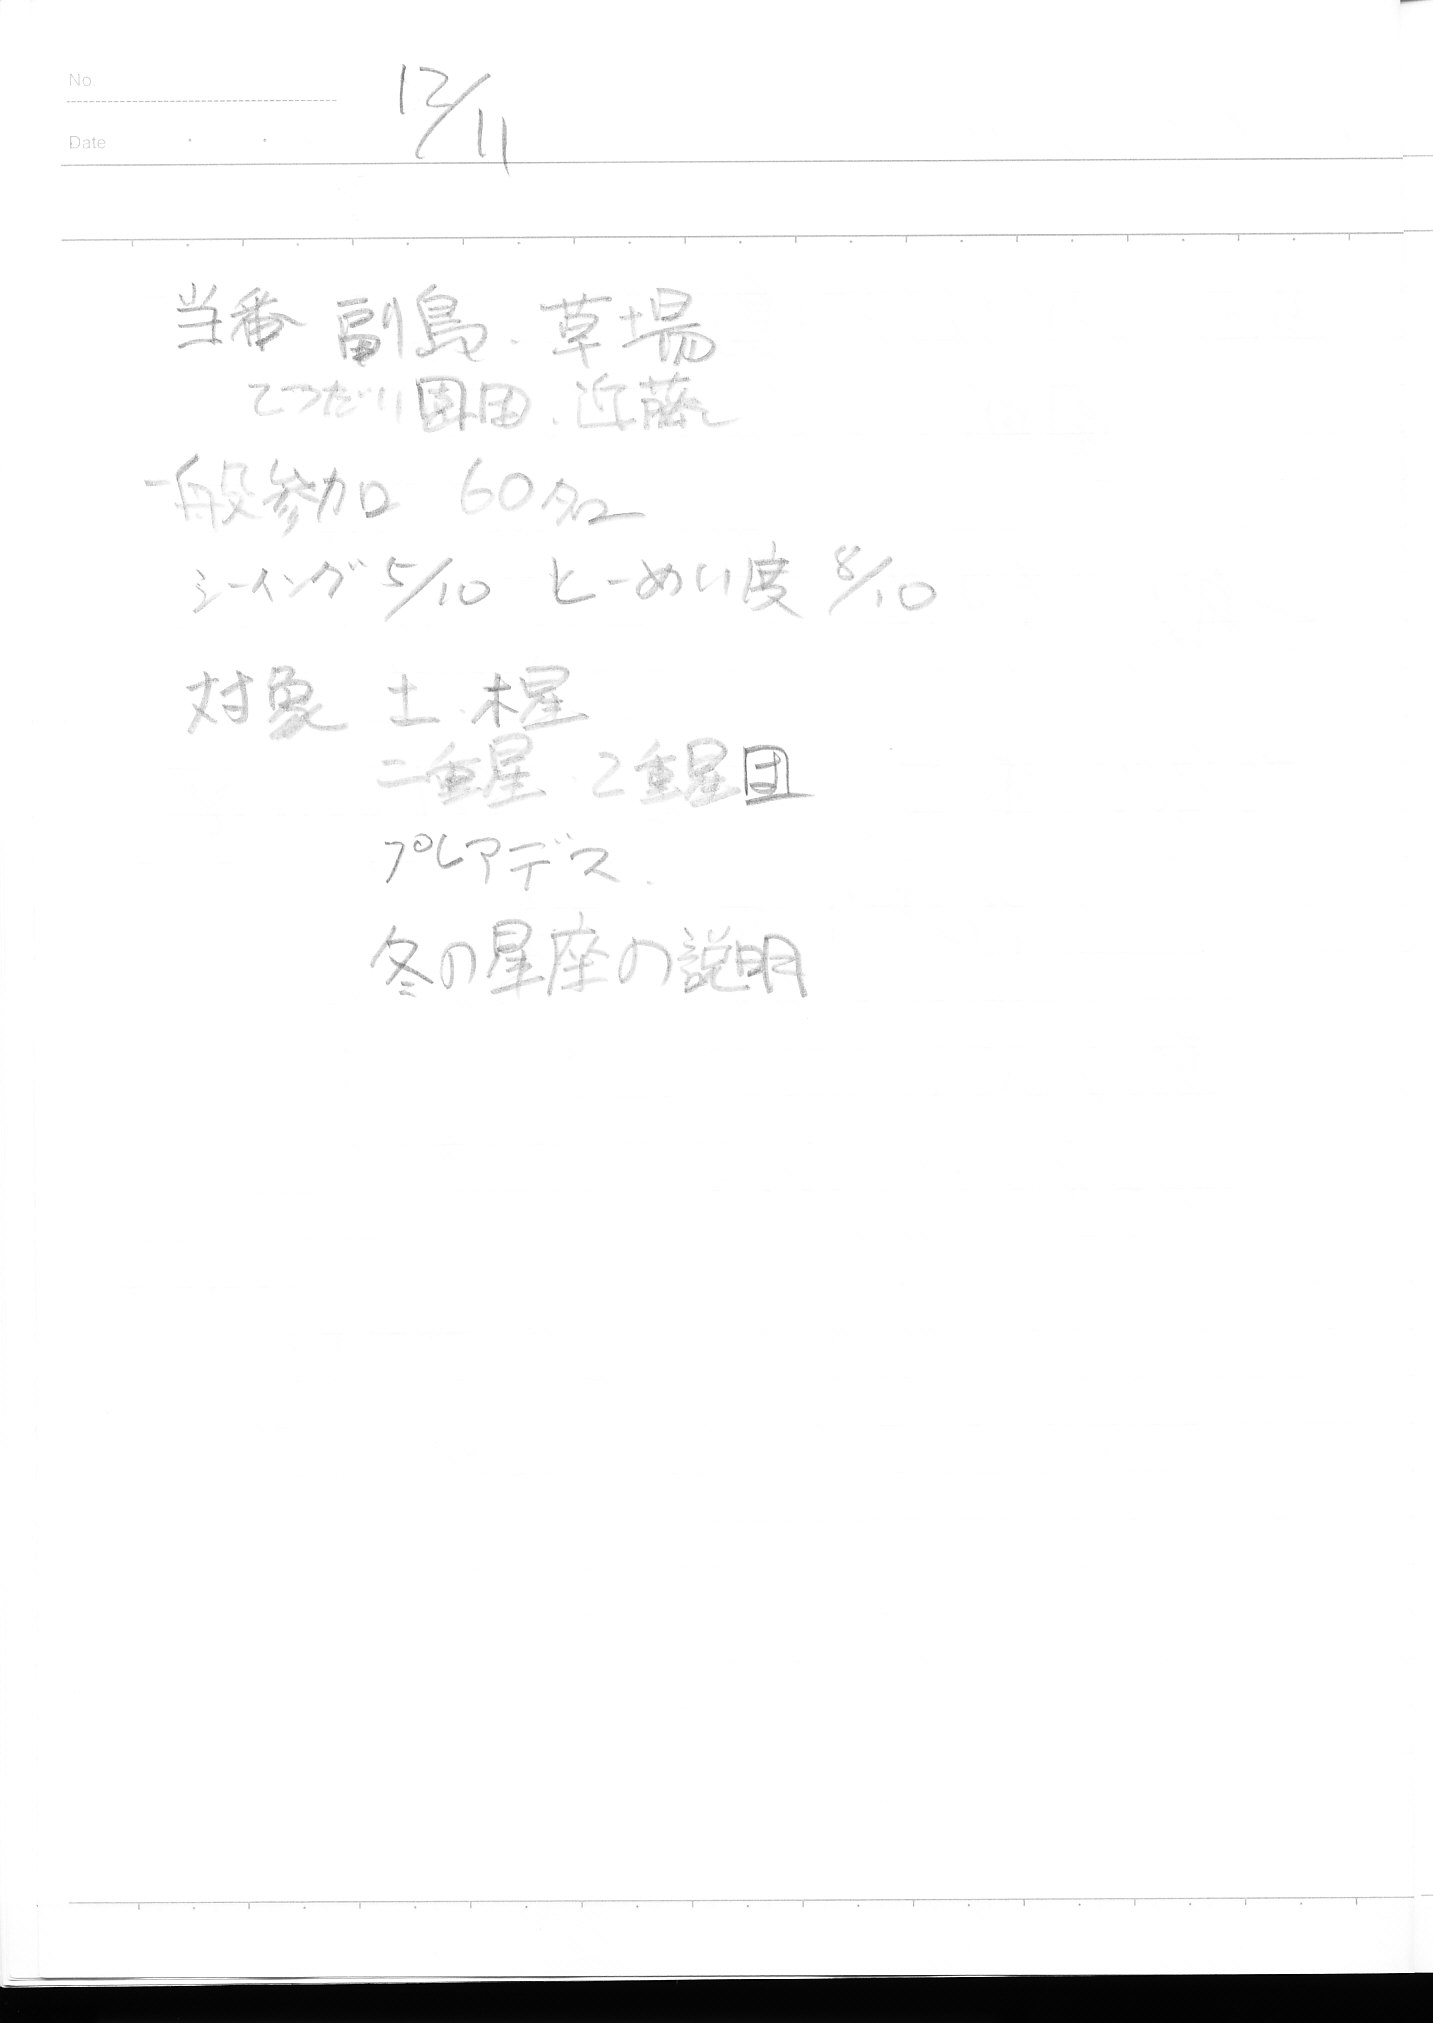 No.
12/11
Date
当番 副島、草場
てつだい 園田、近藤
一般参加 60名
シーイング 5/10 とーめい度 8/10
対象 土、木星
二重星、2重星団
プレアデス.
冬の星座の説明